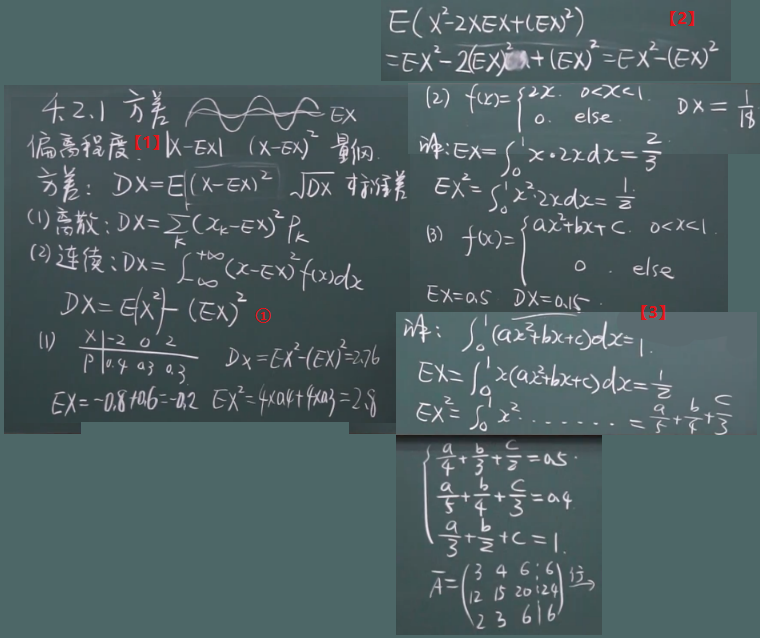 4.2.1 方差 EX
偏离程度. 【1】 |X-EX| (X-EX)² 量纲.
方差: DX=E(X-EX)² √DX 标准差
(1) 离散: DX=∑ₖ(xₖ-EX)²Pₖ
(2) 连续: DX=∫_{-∞}^{+∞}(x-EX)²f(x)dx
DX=E(X²)-(EX)² ①
(1) X | -2 0 2
P | 0.4 0.3 0.3
DX=EX²-(EX)²=2.76
EX=-0.8+0.6=-0.2 EX²=4×0.4+4×0.3=2.8
E(X²-2XEX+(EX)²) 【2】
=EX²-2(EX)²+(EX)²=EX²-(EX)²
(2) f(x)={2x. 0<x<1.
0. else.
DX=1/18
解: EX=∫₀¹x·2xdx=2/3
EX²=∫₀¹x²·2xdx=1/2
(3) f(x)={ax²+bx+c. 0<x<1.
0. else
EX=0.5 DX=0.15. 【3】
解: ∫₀¹(ax²+bx+c)dx=1.
EX=∫₀¹x(ax²+bx+c)dx=1/2
EX²=∫₀¹x².......=a/5+b/4+c/3
{a/4+b/3+c/2=0.5.
a/5+b/4+c/3=0.4
a/3+b/2+c=1.
Ā=(3 4 6 ¦ 6
12 15 20 ¦ 24
2 3 6 | 6) 行→